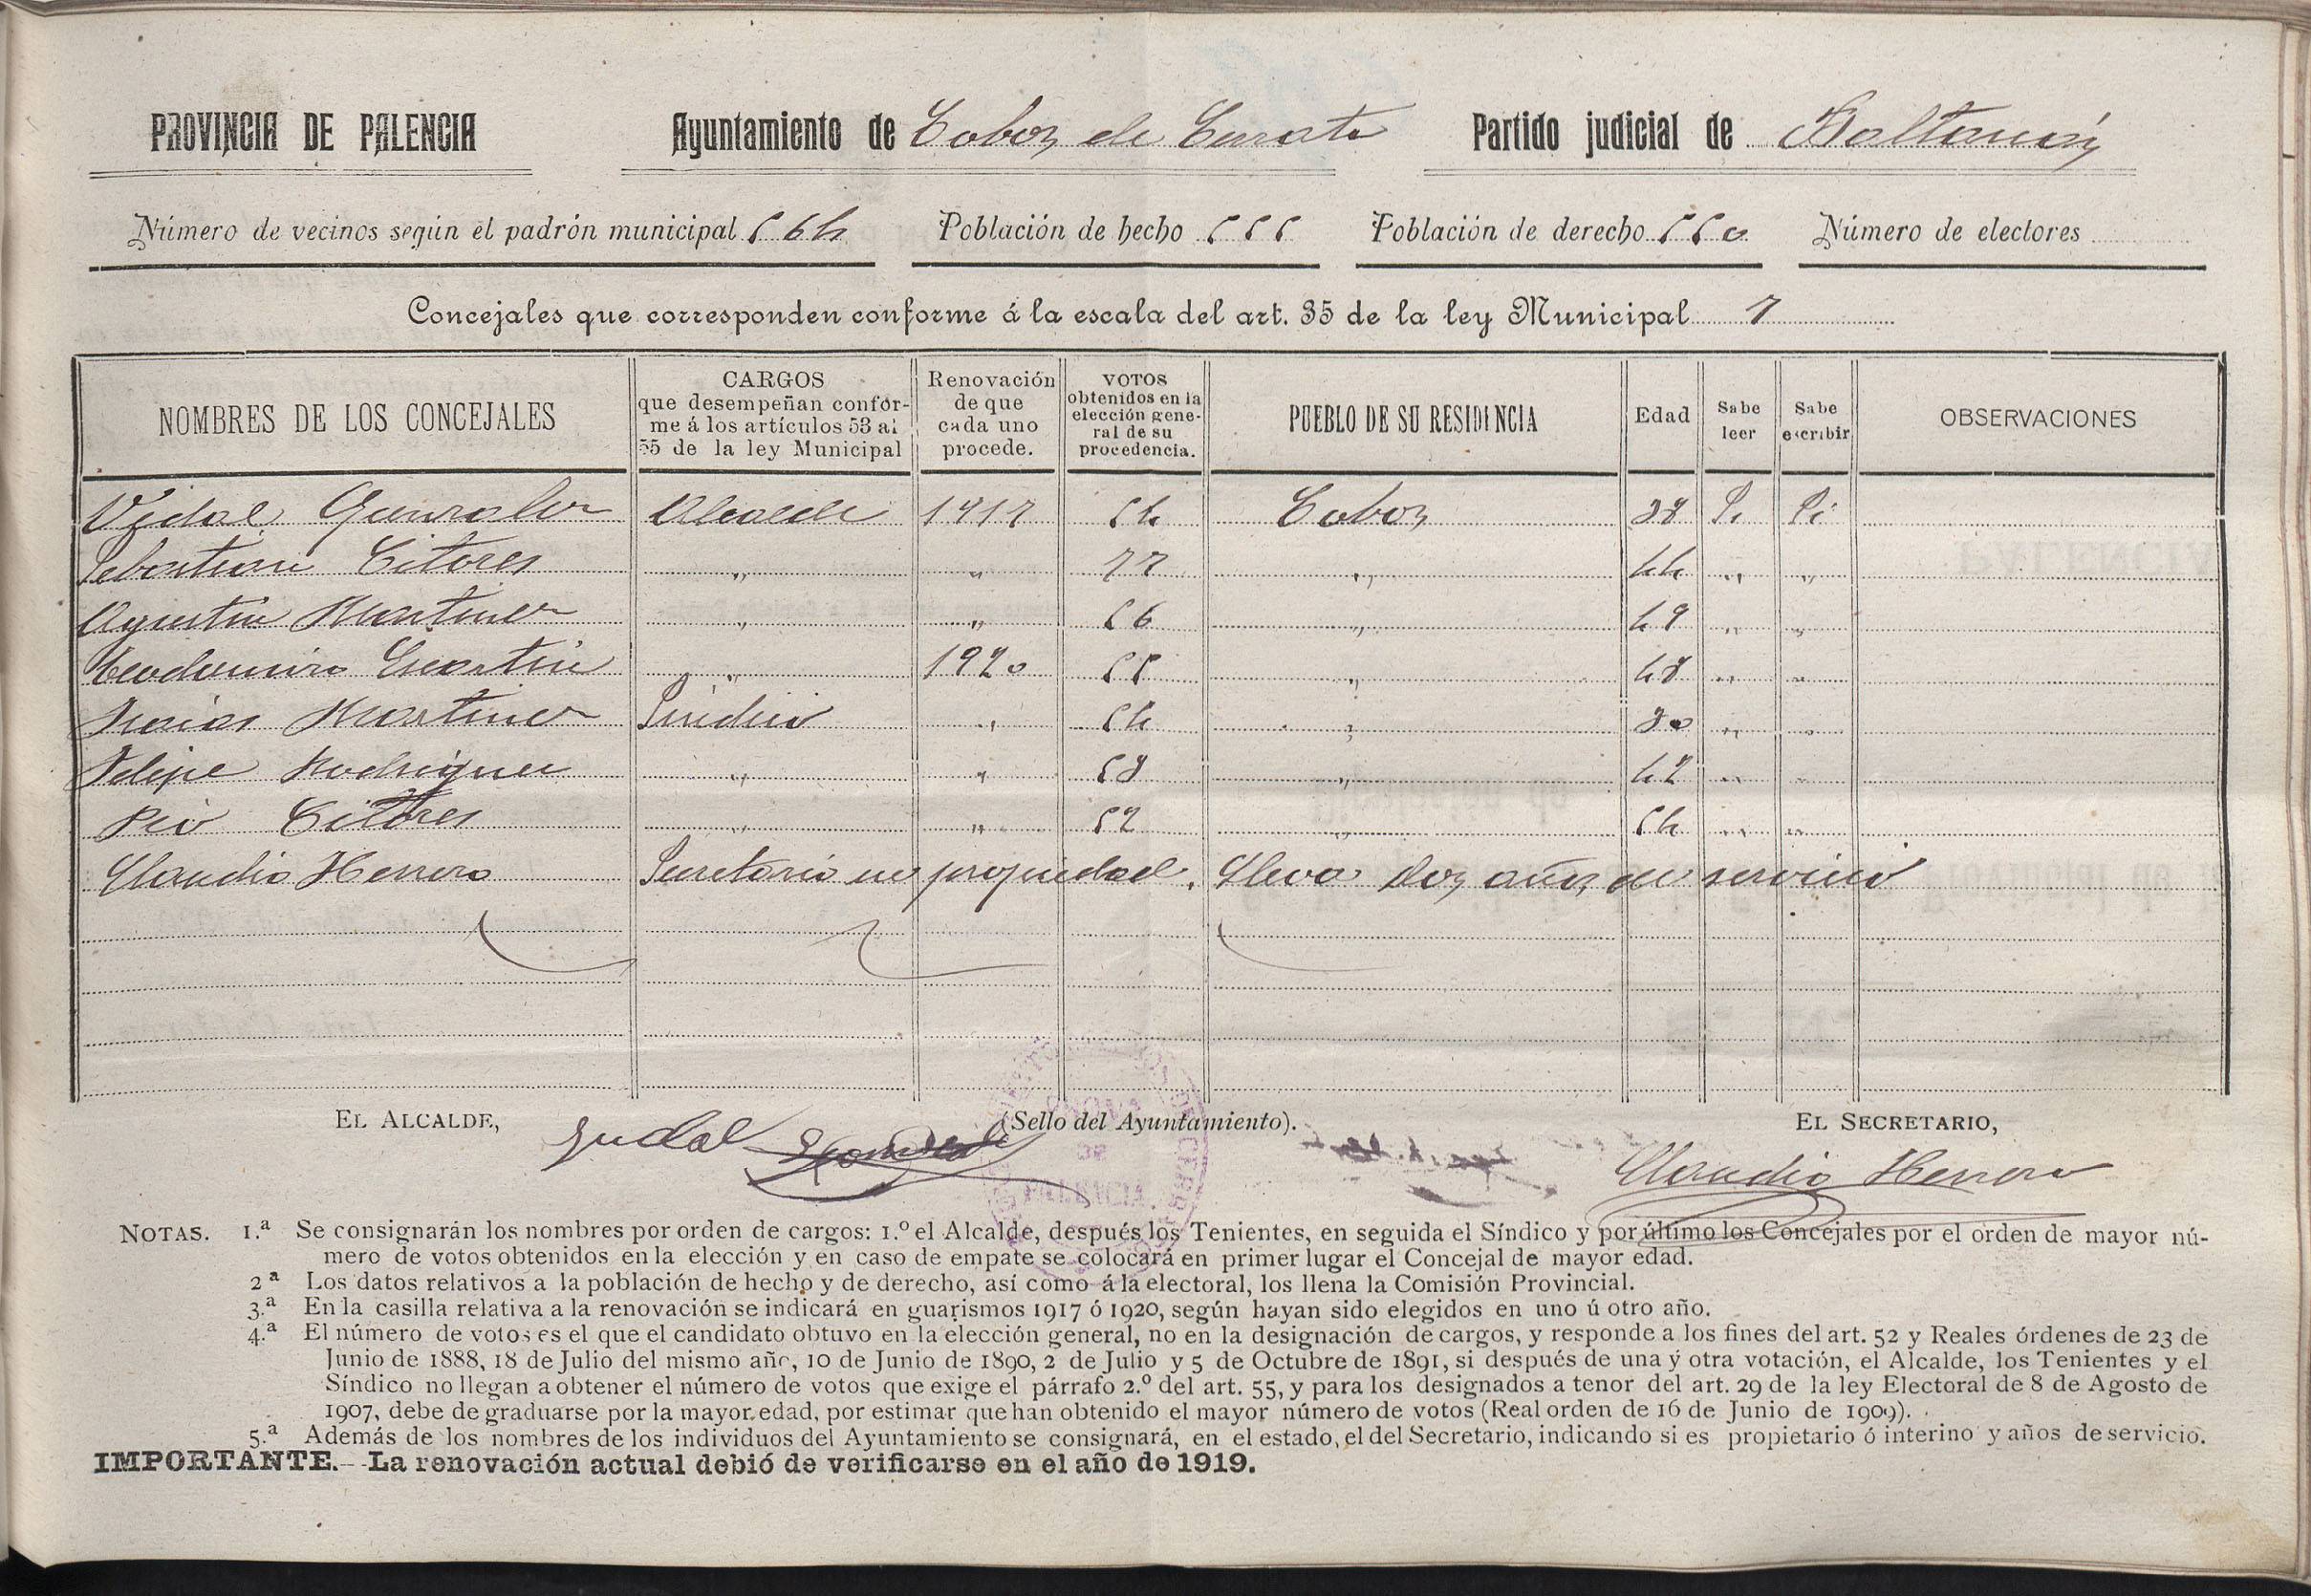 PROVINCIA DE PALENCIA Ayuntamiento de Cobos de Cerrato Partido judicial de Baltanás
Número de vecinos según el padrón municipal 564 Población de hecho 555 Población de derecho 550 Número de electores
Concejales que corresponden conforme á la escala del art. 35 de la ley Municipal 7
NOMBRES DE LOS CONCEJALES CARGOS que desempeñan conforme á los artículos 53 al 55 de la ley Municipal Renovación de que cada uno procede. VOTOS obtenidos en la elección general de su procedencia. PUEBLO DE SU RESIDENCIA Edad Sabe leer Sabe escribir OBSERVACIONES
Vidal Gonzalez Alcalde 1917 54 Cobos 38 Si Si
Sebastian Citores " " 77 " 44 " "
Agustin Martinez " " 56 " 49 " "
Teodomiro " 1920 55 " 48 " "
Isaias Martinez Sindico " 54 " 30 " "
Felipe Rodriguez " " 58 " 42 " "
Pio Citores " " 52 " 54 " "
Claudio Herrero Secretario en propiedad. Lleva dos años de servicio
EL ALCALDE, (Sello del Ayuntamiento). EL SECRETARIO,
Vidal Gonzalez Claudio Herrero
PALENCIA
NOTAS. 1.ª Se consignarán los nombres por orden de cargos: 1.º el Alcalde, después los Tenientes, en seguida el Síndico y por último los Concejales por el orden de mayor nú-
mero de votos obtenidos en la elección y en caso de empate se colocará en primer lugar el Concejal de mayor edad.
2ª Los datos relativos a la población de hecho y de derecho, así como á la electoral, los llena la Comisión Provincial.
3.ª En la casilla relativa a la renovación se indicará en guarismos 1917 ó 1920, según hayan sido elegidos en uno ú otro año.
4.ª El número de votos es el que el candidato obtuvo en la elección general, no en la designación de cargos, y responde a los fines del art. 52 y Reales órdenes de 23 de
Junio de 1888, 18 de Julio del mismo año, 10 de Junio de 1890, 2 de Julio y 5 de Octubre de 1891, si después de una y otra votación, el Alcalde, los Tenientes y el
Síndico no llegan a obtener el número de votos que exige el párrafo 2.º del art. 55, y para los designados a tenor del art. 29 de la ley Electoral de 8 de Agosto de
1907, debe de graduarse por la mayor edad, por estimar que han obtenido el mayor número de votos (Real orden de 16 de Junio de 1909).
5.ª Además de los nombres de los individuos del Ayuntamiento se consignará, en el estado, el del Secretario, indicando si es propietario ó interino y años de servicio.
IMPORTANTE.--La renovación actual debió de verificarse en el año de 1919.